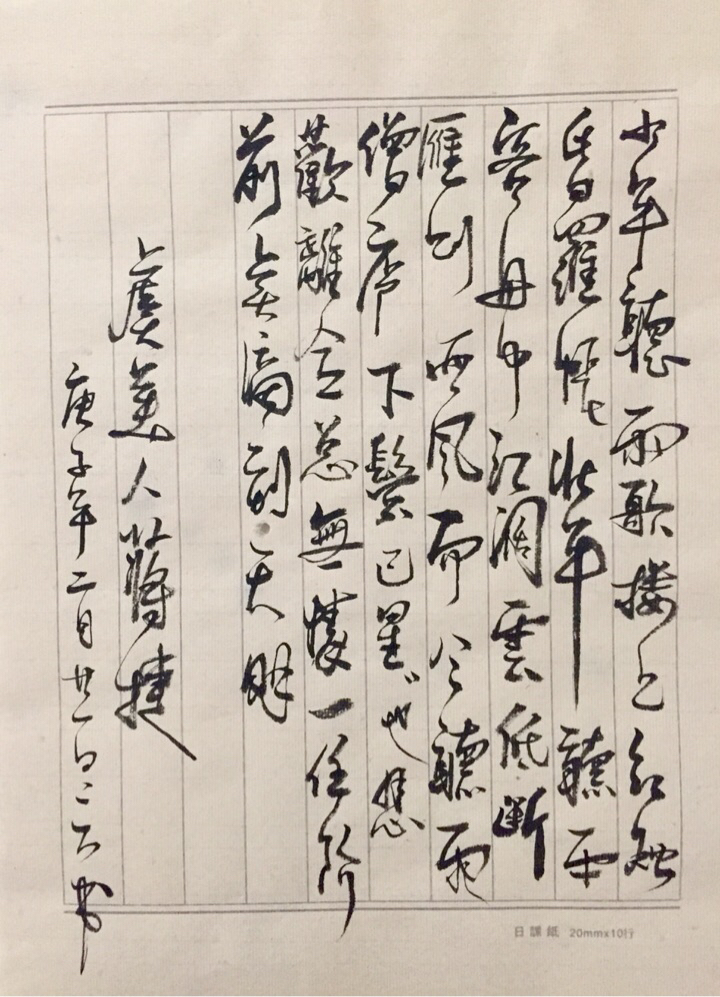 少年聽雨歌樓上紅燭
昏羅帳壯年聽雨
客舟中江闊雲低斷
雁叫西風而今聽雨
僧廬下鬢已星〻也悲
歡離合總無情一任階
前點滴到天明
虞美人蔣捷
庚子年二月廿一日书
日課紙 20mmx10行